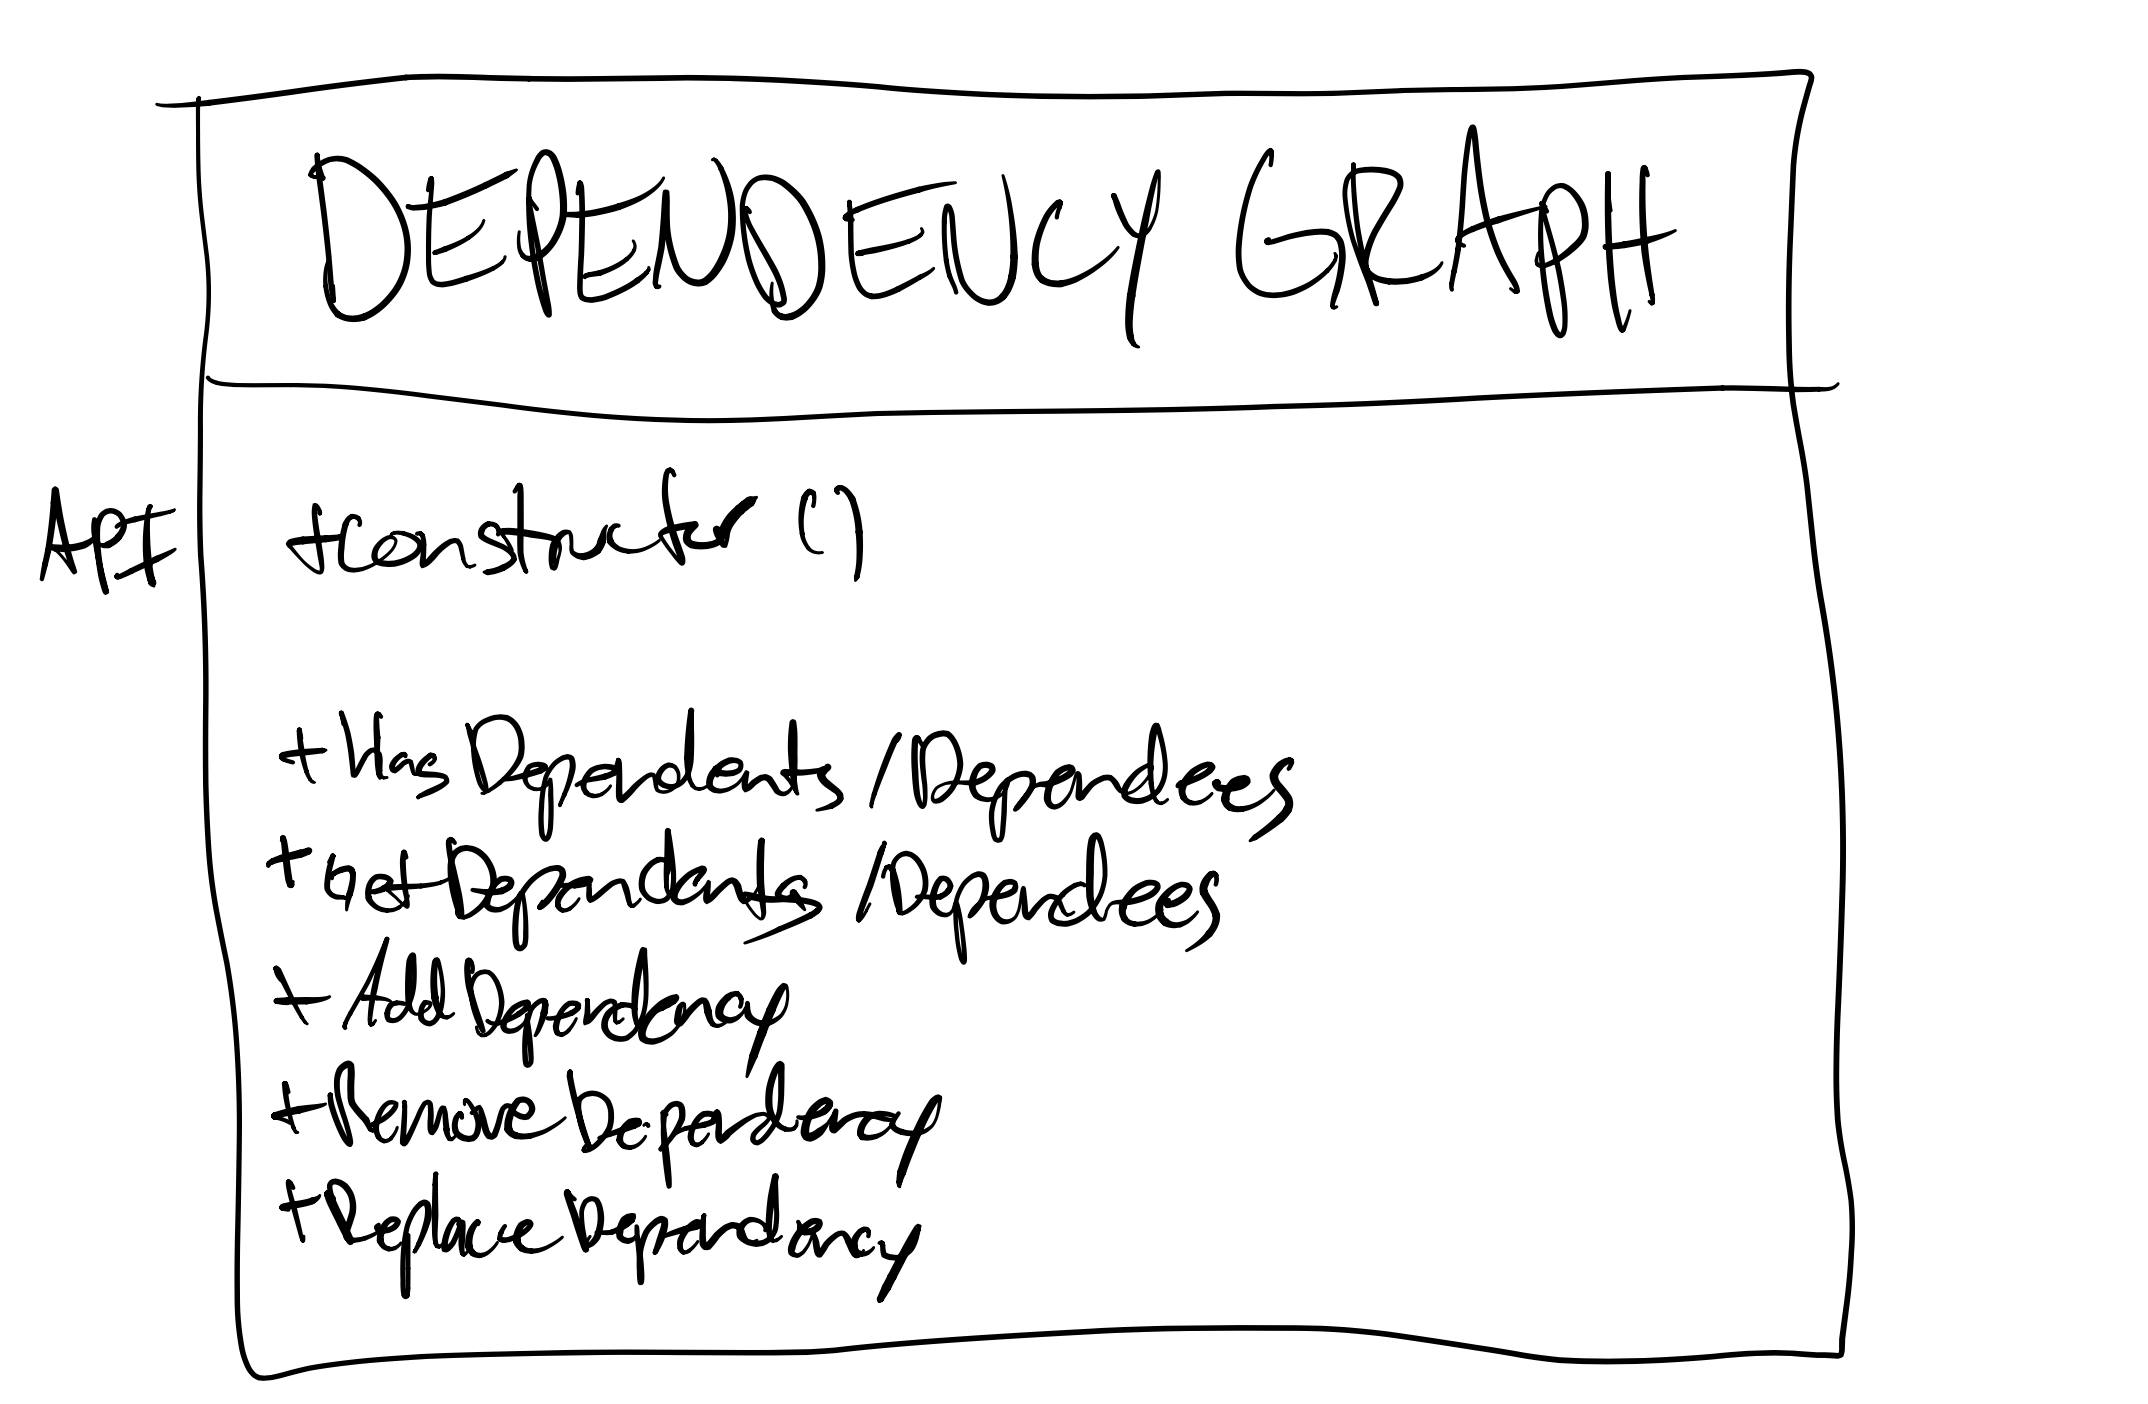 DEPENDENCY GRAPH
API
+Constructor ()
+ Has Dependents / Dependees
+ get Dependents / Dependees
+ Add Dependency
+ Remove Dependency
+ Replace Dependency